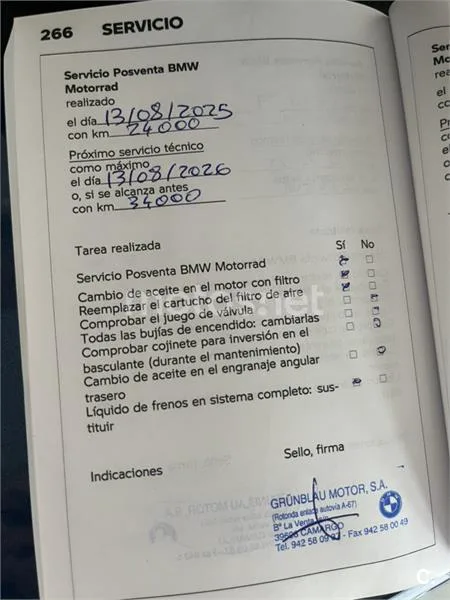 266 SERVICIO
Servicio Posventa BMW
Motorrad
realizado
el día 13/08/2025
con km 24000
Próximo servicio técnico
como máximo
el día 13/08/2026
o, si se alcanza antes
con km 34000
Tarea realizada Sí No
Servicio Posventa BMW Motorrad
Cambio de aceite en el motor con filtro
Reemplazar el cartucho del filtro de aire
Comprobar el juego de válvula
Todas las bujías de encendido: cambiarlas
Comprobar cojinete para inversión en el
basculante (durante el mantenimiento)
Cambio de aceite en el engranaje angular
trasero
Líquido de frenos en sistema completo: sus-
tituir
Indicaciones
Sello, firma
GRÜNBLAU MOTOR, S.A.
(Rotonda enlace autovía A-67)
Bº La Venta
CAMARGO
Tel. 942 58 09 - Fax 942 58 00 49
BMW